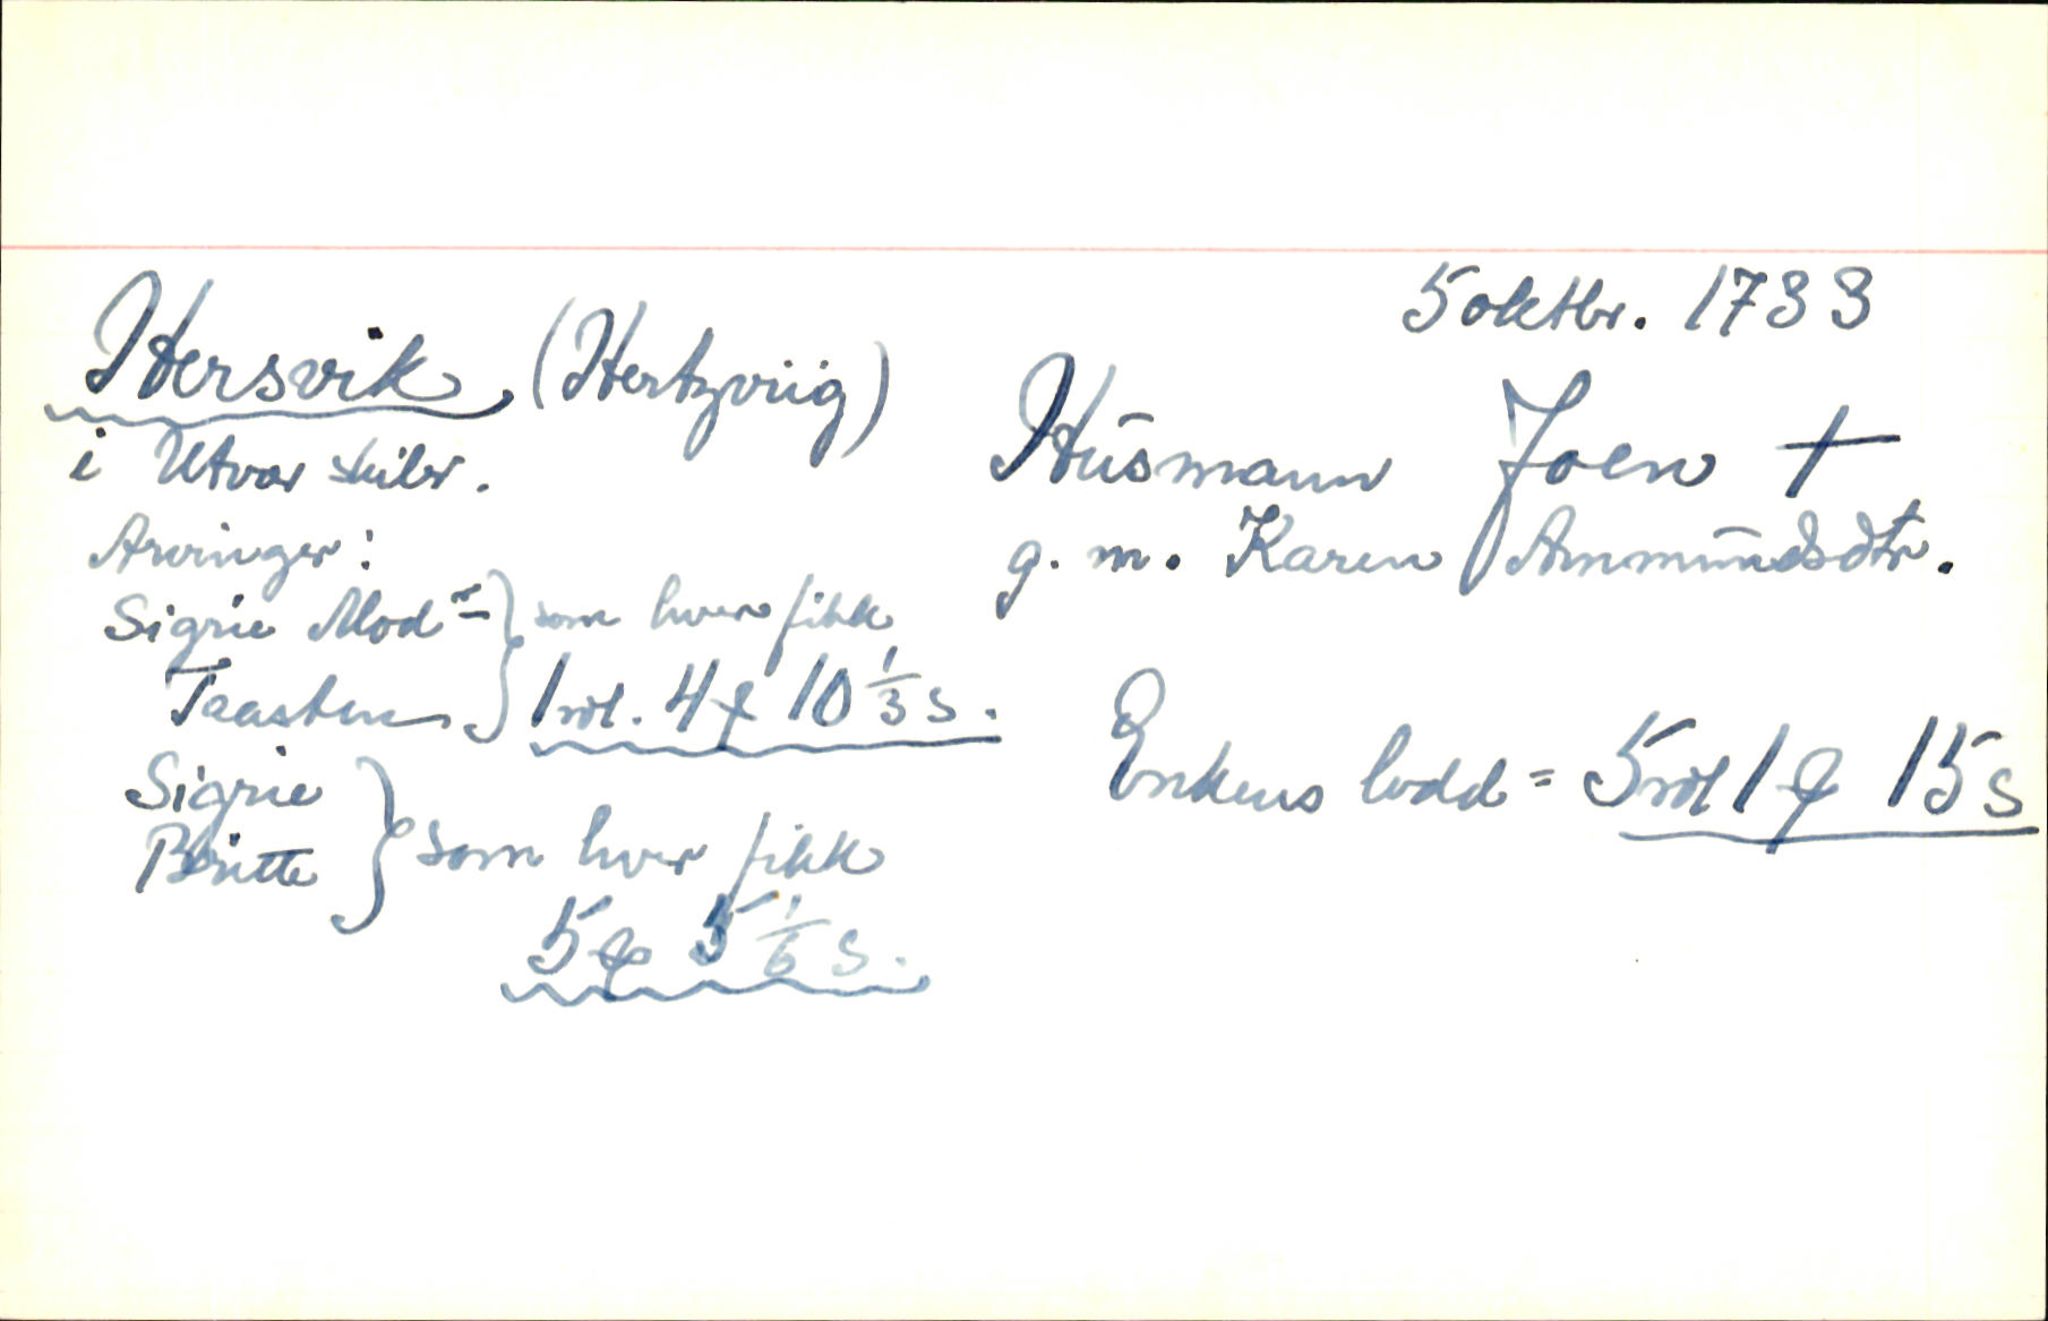 5 oktbr. 1733
Hersvik (Hertzviig)
i Utvær skibr.
Husmann Joen †
g. m. Karen Ammundsdtr.
Arvinger:
Sigrie Mod=
Taasten } som hver fikk
1 rdl. 4 ƒ 10 1/3 s.
Sigrie
Britte } som hver fikk
5 ƒ 5 1/6 s.
Enkens lodd = 5 rdl 1 ƒ 15 s